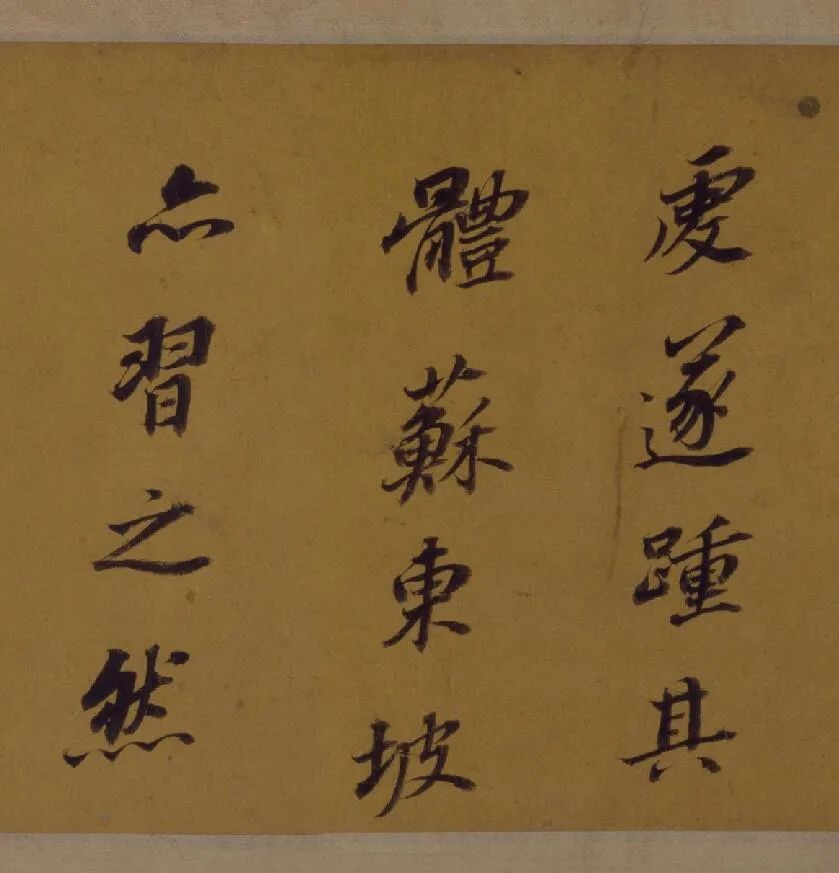 處遂踵其
體蘇東坡
亦習之然